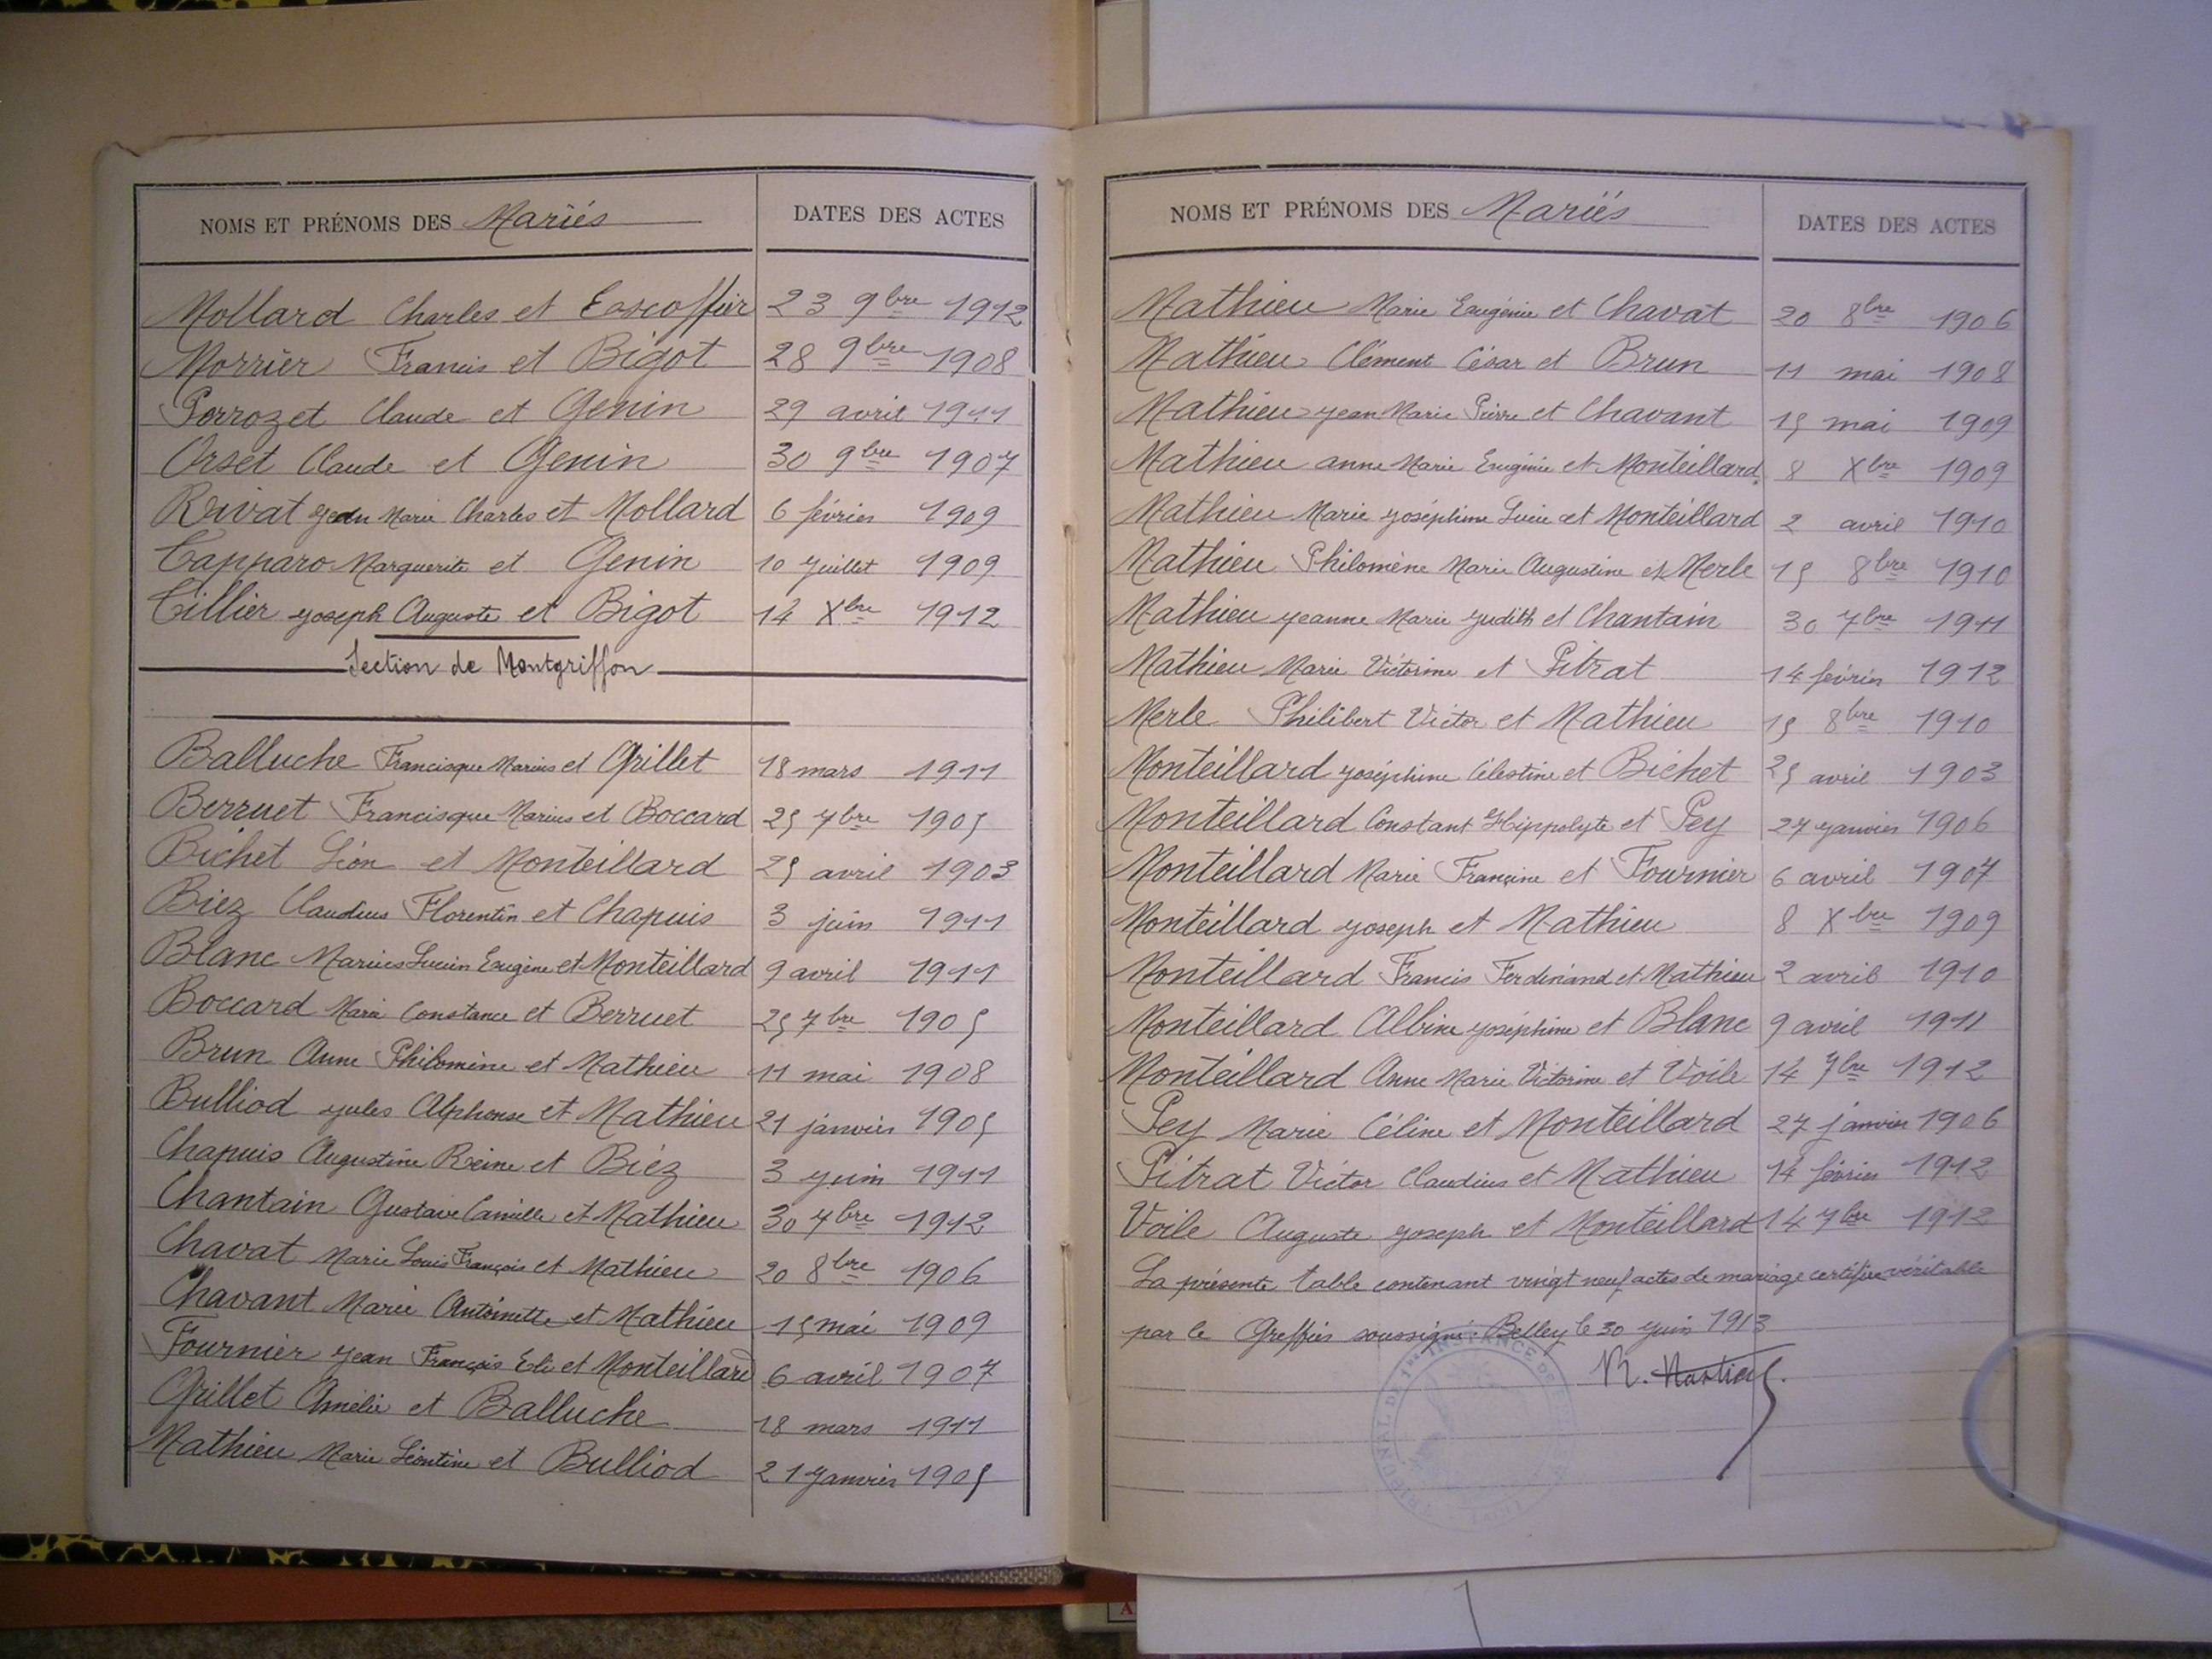 NOMS ET PRÉNOMS DES Mariés
DATES DES ACTES
Mollard Charles et Escoffier 23 9bre 1912
Morrier Francis et Bigot 28 9bre 1908
Porrozet Claude et Genin 29 avril 1911
Orset Claude et Genin 30 9bre 1907
Rivat Jean Marie Charles et Mollard 6 février 1909
Tapparo Marguerite et Genin 10 Juillet 1909
Tillier Joseph Auguste et Bigot 14 Xbre 1912
Section de Montgriffon
Balluche Francisque Marius et Grillet 18 mars 1911
Berruet Francisque Marius et Boccard 25 7bre 1905
Bichet Léon et Monteillard 25 avril 1903
Biez Claudius Florentin et Chapuis 3 juin 1911
Blanc Marius Lucien Eugène et Monteillard 9 avril 1911
Boccard Marie Constance et Berruet 25 7bre 1905
Brun Anne Philomène et Mathieu 11 mai 1908
Bulliod Jules Alphonse et Mathieu 21 janvier 1905
Chapuis Augustine Reine et Biéz 3 Juin 1911
Chantain Gustave Camille et Mathieu 30 7bre 1912
Chavat Marie Louis François et Mathieu 20 8bre 1906
Chavant Marie Antoinette et Mathieu 15 mai 1909
Fournier Jean François Eli et Monteillard 6 avril 1907
Grillet Amélie et Balluche 18 mars 1911
Mathieu Marie Léontine et Bulliod 21 Janvier 1905
NOMS ET PRÉNOMS DES Mariés
DATES DES ACTES
Mathieu Marie Eugénie et Chavat 20 8bre 1906
Mathieu Clément César et Brun 11 mai 1908
Mathieu Jean Marie Pierre et Chavant 15 mai 1909
Mathieu anne Marie Eugénie et Monteillard 8 Xbre 1909
Mathieu Marie Joséphine Lucie et Monteillard 2 avril 1910
Mathieu Philomène Marie Augustine et Merle 15 8bre 1910
Mathieu Jeanne Marie Judith et Chantain 30 7bre 1911
Mathieu Marie Victorine et Pitrat 14 février 1912
Merle Philibert Victor et Mathieu 15 8bre 1910
Monteillard Joséphine Célestine et Bichet 25 avril 1903
Monteillard Constant Hippolyte et Pey 27 Janvier 1906
Monteillard Marie Francine et Fournier 6 avril 1907
Monteillard Joseph et Mathieu 8 Xbre 1909
Monteillard Francis Ferdinand et Mathieu 2 avril 1910
Monteillard Albine Joséphine et Blanc 9 avril 1911
Monteillard Anne Marie Victorine et Voile 14 7bre 1912
Pey Marie Céline et Monteillard 27 janvier 1906
Pitrat Victor Claudius et Mathieu 14 février 1912
Voile Auguste Joseph et Monteillard 14 7bre 1912
La présente table contenant vingt neuf actes de mariage certifiée véritable
par le Greffier soussigné. Belley le 30 Juin 1913
TRIBUNAL DE 1re INSTANCE DE